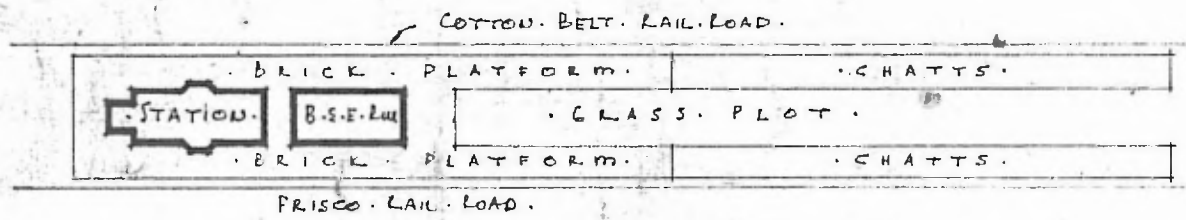 COTTON. BELT. RAIL. ROAD.
. BRICK . PLATFORM.
. CHATTS.
. STATION.
B.& E. RM
. GRASS. PLOT .
. BRICK . PLATFORM.
. CHATTS.
FRISCO. RAIL. ROAD.